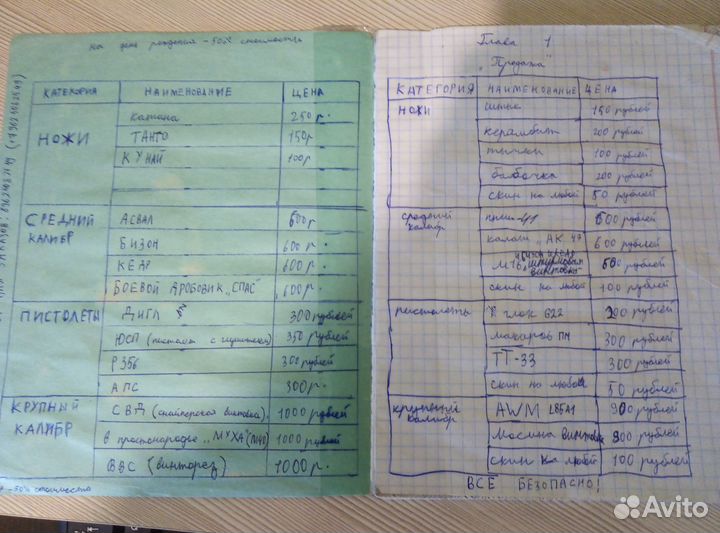 на день рождения -50% стоимость
КАТЕГОРИЯ НАИМЕНОВАНИЕ ЦЕНА
НОЖИ
катана 250 р.
ТАНТО 150р
КУНАЙ 100р
СРЕДНИЙ КАЛИБР
АСВАЛ 600р
БИЗОН 600р.
КЕДР 600р.
БОЕВОЙ ДРОБОВИК "СПАС" 600р.
ПИСТОЛЕТЫ
ДИГЛ 300 рублей
ЮСП (пистолет с глушителем) 350 рублей
Р356 300 рублей
АПС 300р.
КРУПНЫЙ КАЛИБР
СВД (снайперская винтовка) 1000 рублей
в простонародье "МУХА" 1000 рублей
ВВС (винторез) 1000р.
-50% стоимость
Глава 1
"Продажа"
КАТЕГОРИЯ НАИМЕНОВАНИЕ ЦЕНА
НОЖИ
150 рублей
керамбит 200 рублей
тычки 100 рублей
бабочка 200 рублей
скин на любой 50 рублей
средний калибр
600 рублей
калаш "АК 47 600 рублей
М16 "штурмовая винтовка"
скин на любой 100 рублей
пистолеты
глок 200 рублей
макаров ПМ 300 рублей
ТТ-33 300 рублей
скин на любой 50 рублей
крупный калибр
AWM L85A1 900 рублей
Мосина винтовка 900 рублей
скин на любой 100 рублей
ВСЕ БЕЗОПАСНО!
Avito